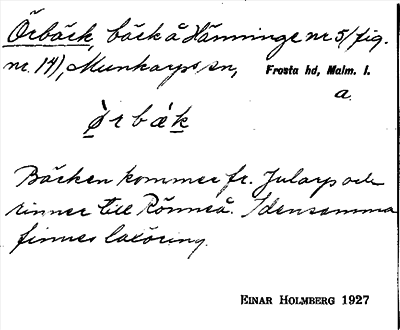 Örbäck, bäck å Hänninge nr 5 (fig.
nr. 14), Munkarps sn, Frosta hd, Malm. l.
a.
ø̀ r b æ´ k
Bäcken kommer fr. Jularp och
rinner till Rönneå. I densamma
finnes laxöring.
EINAR HOLMBERG 1927